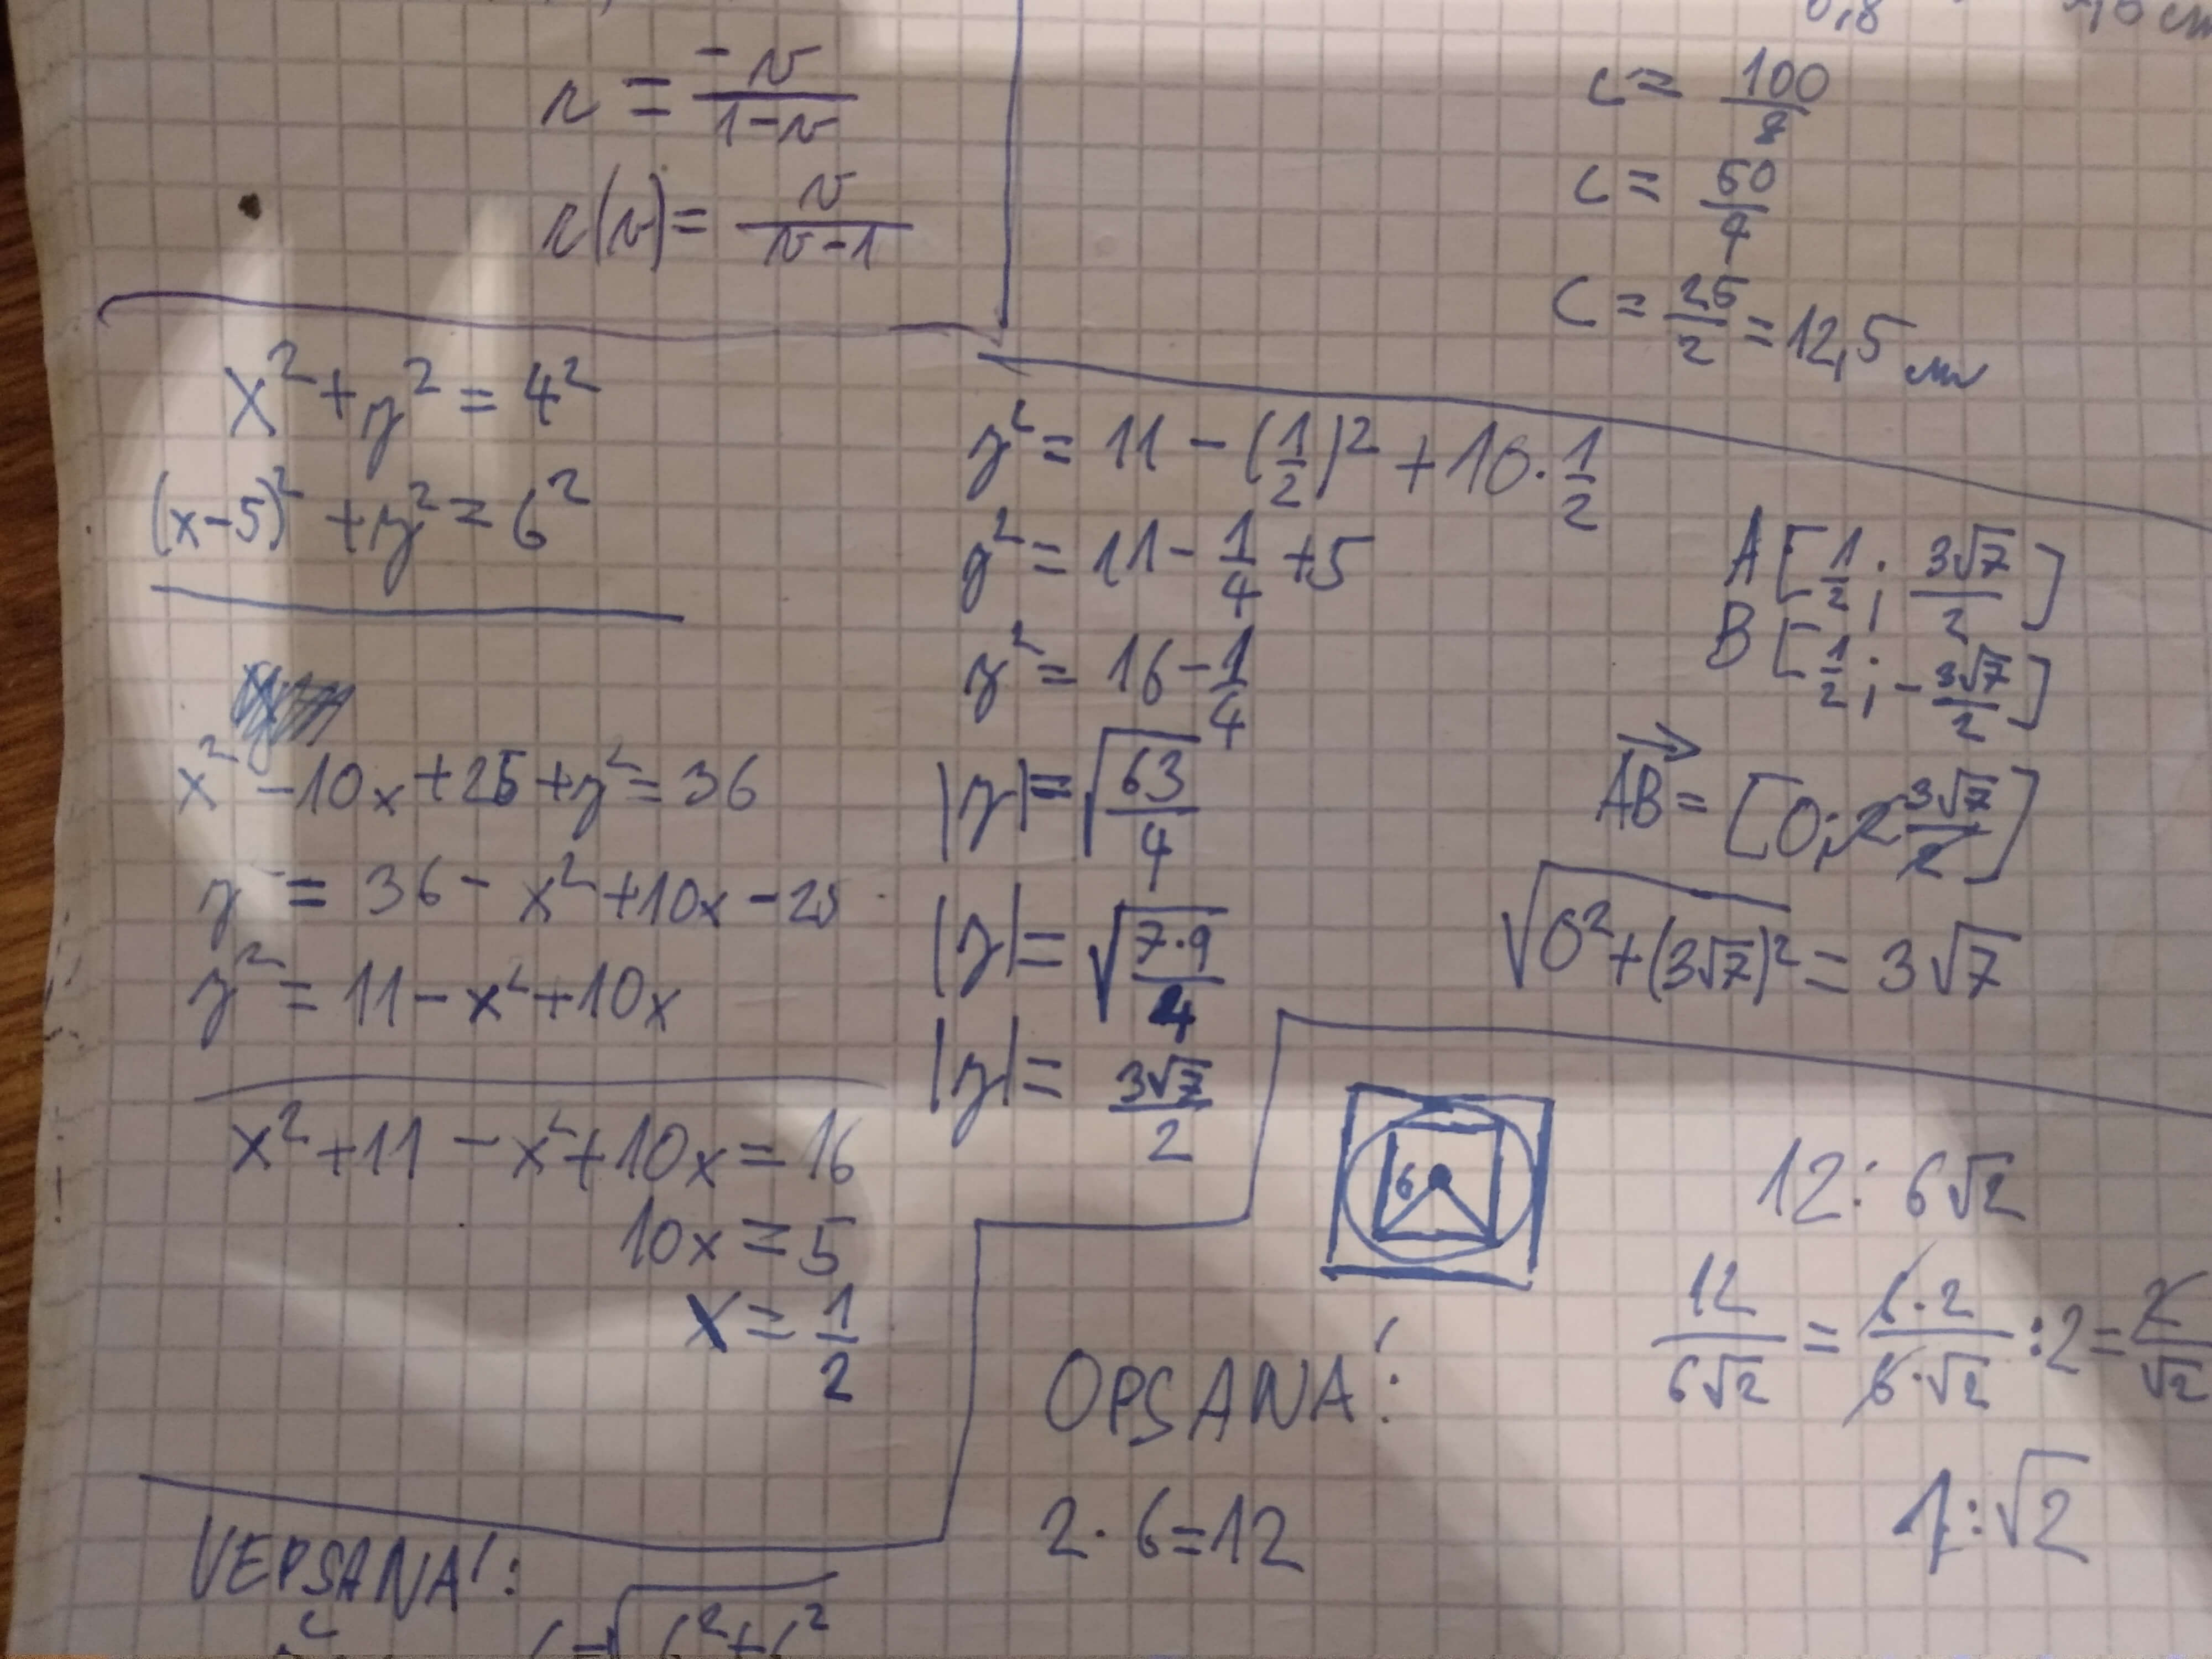 r = -v/(1-v)
r(v) = v/(v-1)
c = 100/8
c = 50/4
C = 25/2 = 12,5 cm
x² + y² = 4²
(x-5)² + y² = 6²
x² - 10x + 25 + y² = 36
y = 36 - x² + 10x - 25
y² = 11 - x² + 10x
x² + 11 - x² + 10x = 16
10x = 5
x = 1/2
y² = 11 - (1/2)² + 10 · 1/2
y² = 11 - 1/4 + 5
y² = 16 - 1/4
|y| = √(63/4)
|y| = √(7·9/4)
|y| = 3√7/2
A [1/2 ; 3√7/2]
B [1/2 ; -3√7/2]
AB = [0; 2 3√7/2]
√(0² + (3√7)²) = 3√7
6
OPSANÁ:
2 · 6 = 12
12 : 6√2
12/(6√2) = 6·2/(6·√2) : 2 = 2/√2
1 : √2
VEPSANÁ: